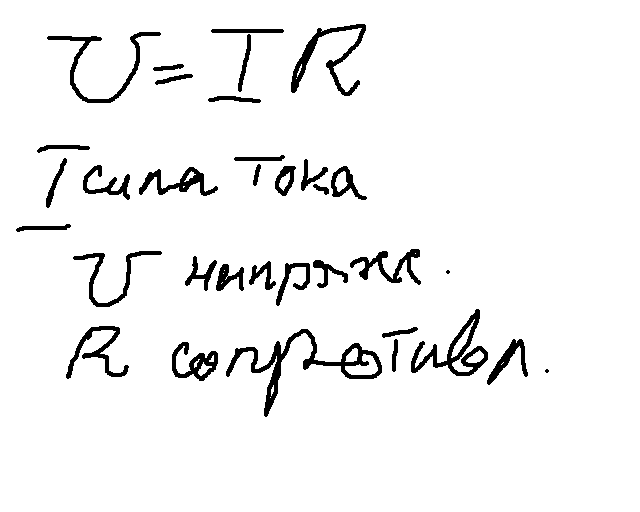 U = I R
I сила тока
U напряж.
R сопротивл.